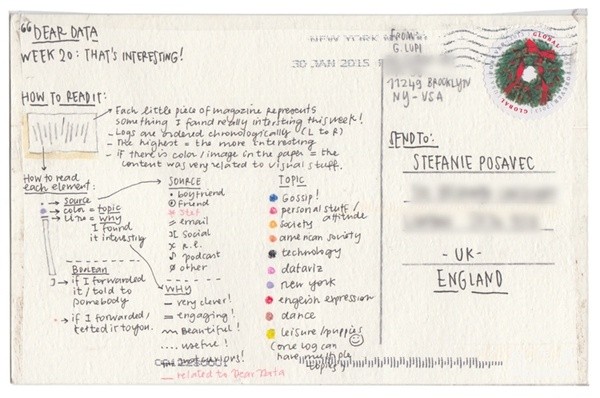 "DEAR DATA
WEEK 20: THAT'S INTERESTING!
HOW TO READ IT:
Each little piece of magazine represents
something I found really interesting this week!
- Logs are ordered chronologically (L to R)
- The highest = the more interesting
- if there is color/image in the paper = the
content was very related to visual stuff.
How to read
each element:
source
color = topic
line = why
I found
it interesting
BOOLEAN
if I forwarded
it / told to
somebody
if I forwarded /
texted it to you.
SOURCE
boyfriend
friend
Stef
email
social
n.e.
podcast
other
WHY
very clever!
engaging!
Beautiful!
useful!
related to Dear Data
TOPIC
Gossip!
personal stuff / attitude
society
american society
technology
dataviz
new york
english expression
dance
leisure/puppies
(one log can
have multiple
topics)
NEW YORK
30 JAN 2015
FROM:
G. LUPI
11249 BROOKLYN
NY - USA
GLOBAL
GLOBAL
SEND TO:
STEFANIE POSAVEC
- UK -
ENGLAND